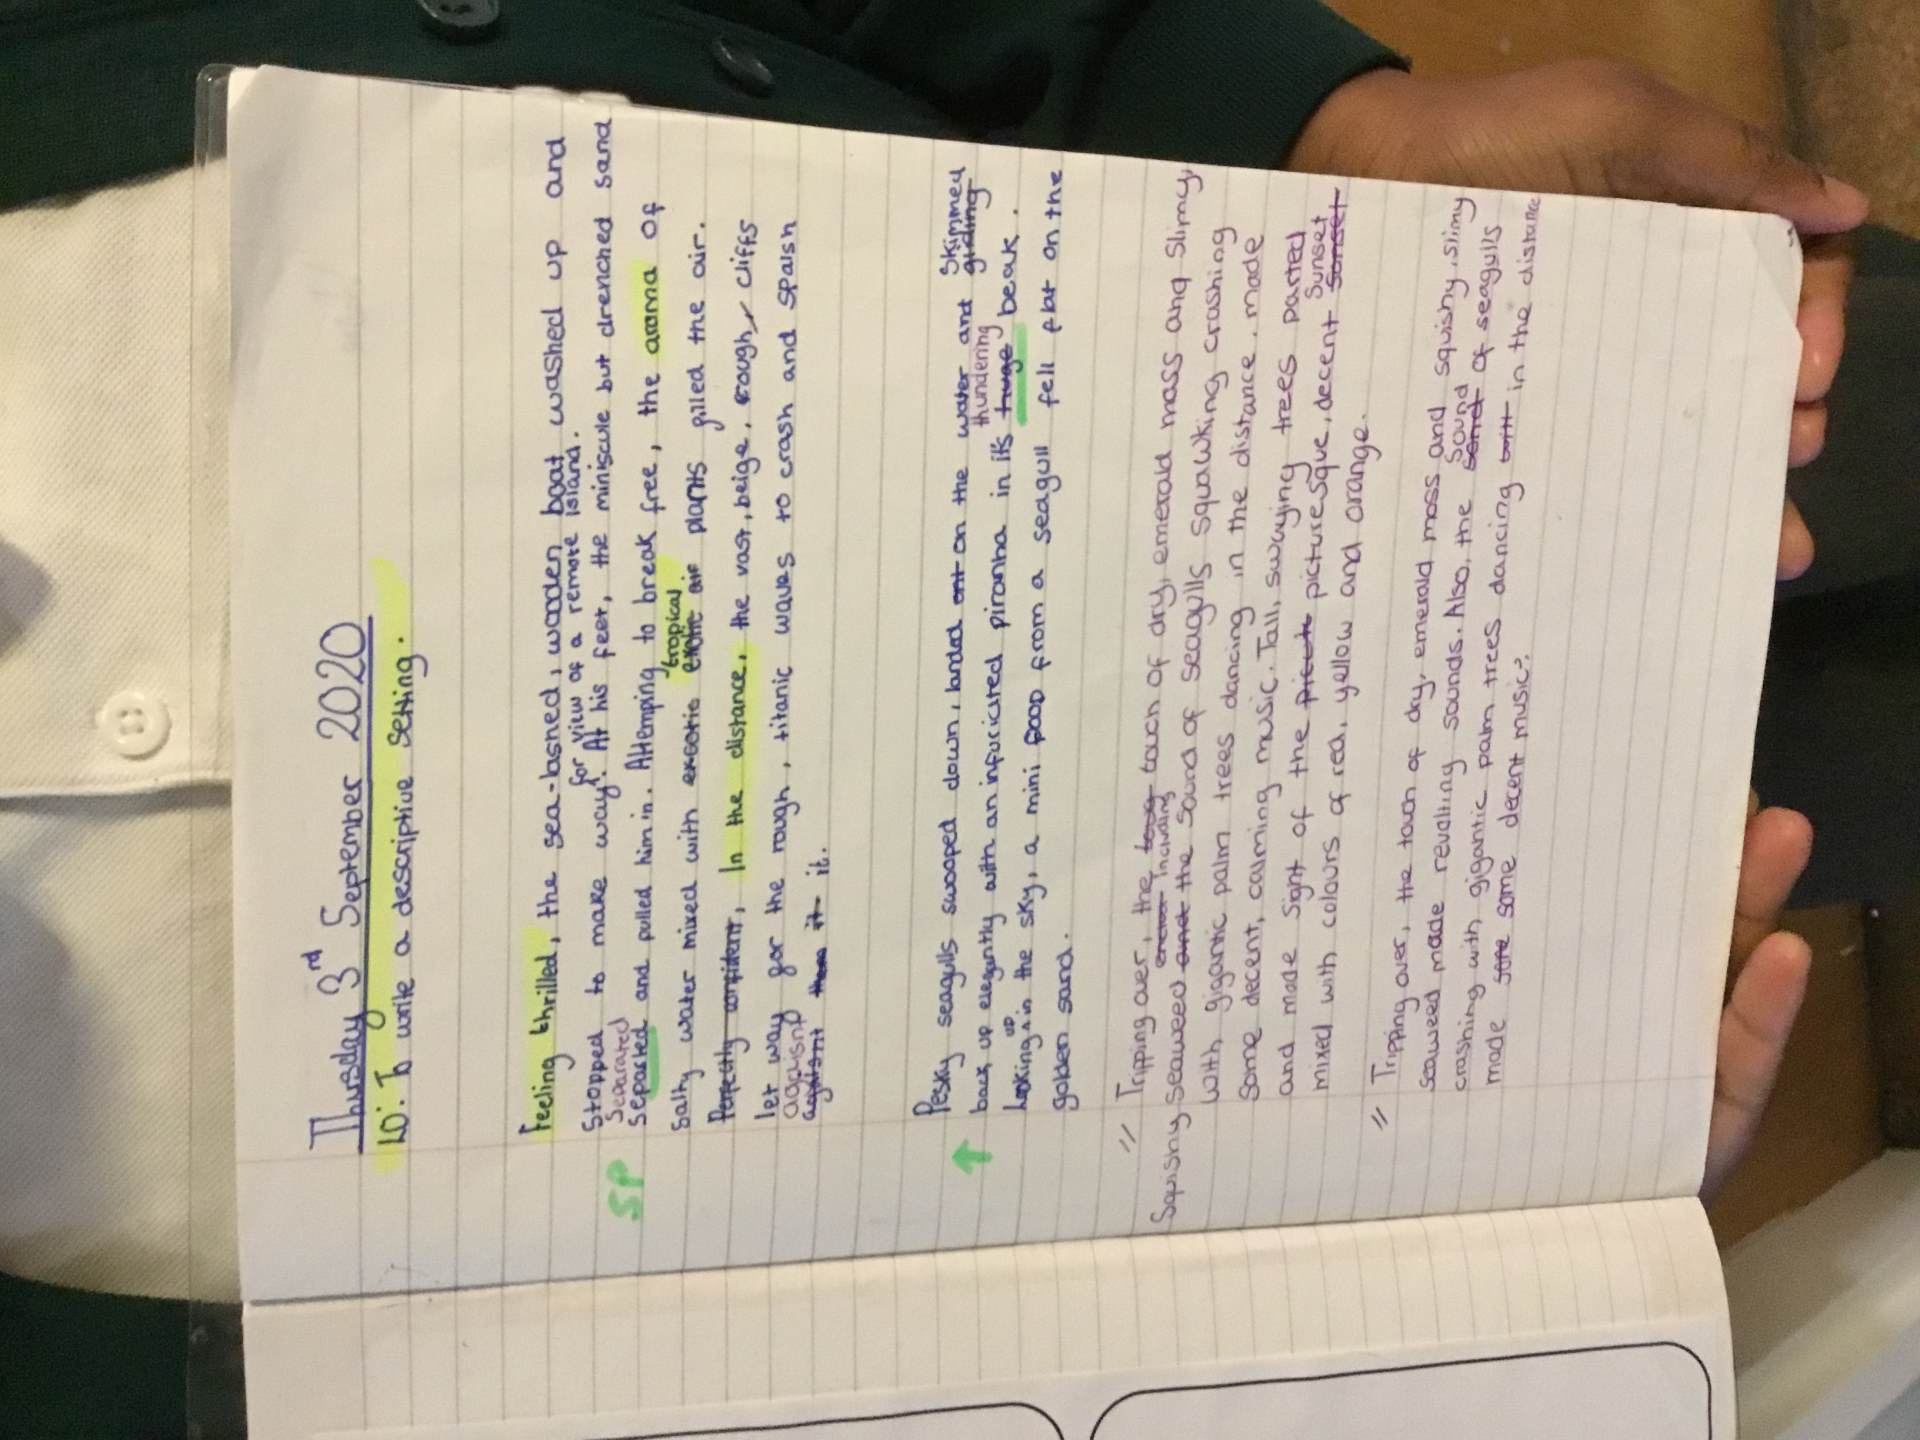 Thursday 3rd September 2020
LO: To write a descriptive setting.
Feeling thrilled, the sea-lashed, wooden boat washed up and
for view of a remote island.
Stopped to make way. At his feet, the miniscule but drenched sand
Separated
Separted and pulled him in. Attemping to break free, the aroma of
tropical
Salty water mixed with exsotic exotic air plants filled the air.
Perfectly confident, In the distance, the vast, beige, rough, cliffs
let way for the rough, titanic waves to crash and splash
agaisnt
agaisnt them it it.
SP
Pesky seagulls swooped down, landed ont on the water and gliding Skimmed
thundering
back up elegantly with an infuriated piranha in its huge beak.
Looking up in the sky, a mini poop from a seagull fell flat on the
golden sand.
// Tripping over, the toug touch of dry, emerald moss and slimy,
including
Squishy seaweed and the sound of seagulls squawking crashing
with gigantic palm trees dancing in the distance, made
some decent, calming music. Tall, swaying trees parted
Sunset
and made sight of the pictu picturesque, decent sonset
mixed with colours of red, yellow and orange.
// Tripping over, the touch of dry, emerald moss and squishy, slimy
Sound
seaweed made revolting sounds. Also, the sond of seagulls
crashing with gigantic palm trees dancing with in the distance
made some decent music.